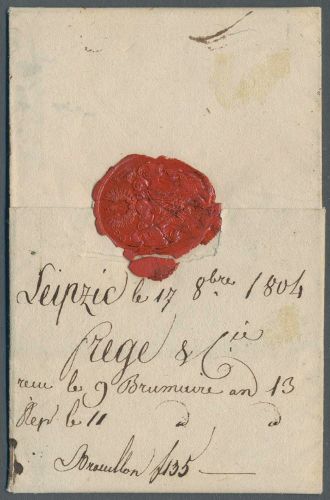 Leipzic le 17 8bre 1804
frege & Cie
recu le 9 Brumaire an 13
Rep le 11 d d
Brouillon f135